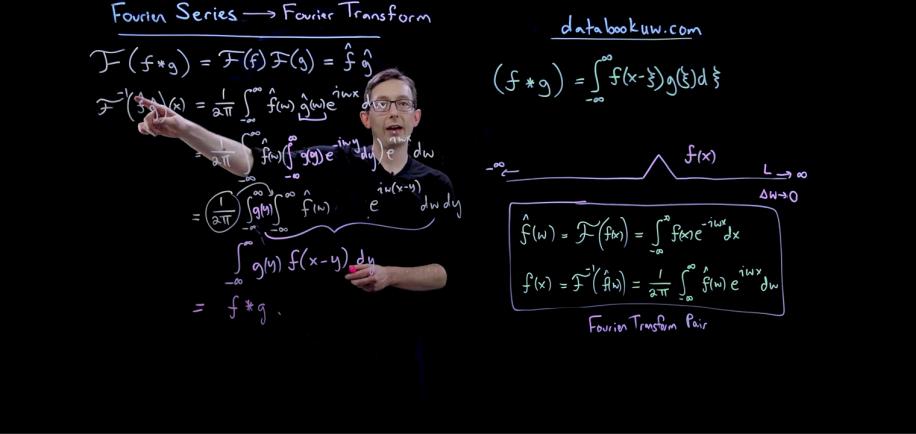 Fourier Series → Fourier Transform
ℱ(f*g) = ℱ(f)ℱ(g) = f̂ ĝ
ℱ⁻¹(f̂ĝ)(x) = 1/2π ∫_{-∞}^{∞} f̂(ω) ĝ(ω) e^{iωx} dω
= 1/2π ∫_{-∞}^{∞} f̂(ω)(∫_{-∞}^{∞} g(y) e^{-iωy} dy) e^{iωx} dω
= 1/2π ∫_{-∞}^{∞} g(y) ∫_{-∞}^{∞} f̂(ω) e^{iω(x-y)} dω dy
∫_{-∞}^{∞} g(y) f(x-y) dy
= f*g.
databookuw.com
(f*g) = ∫_{-∞}^{∞} f(x-ξ)g(ξ)dξ
f(x)
-∞ ← L → ∞
Δω→0
f̂(ω) = ℱ(f(x)) = ∫_{-∞}^{∞} f(x)e^{-iωx}dx
f(x) = ℱ⁻¹(f̂(ω)) = 1/2π ∫_{-∞}^{∞} f̂(ω) e^{iωx} dω
Fourier Transform Pair